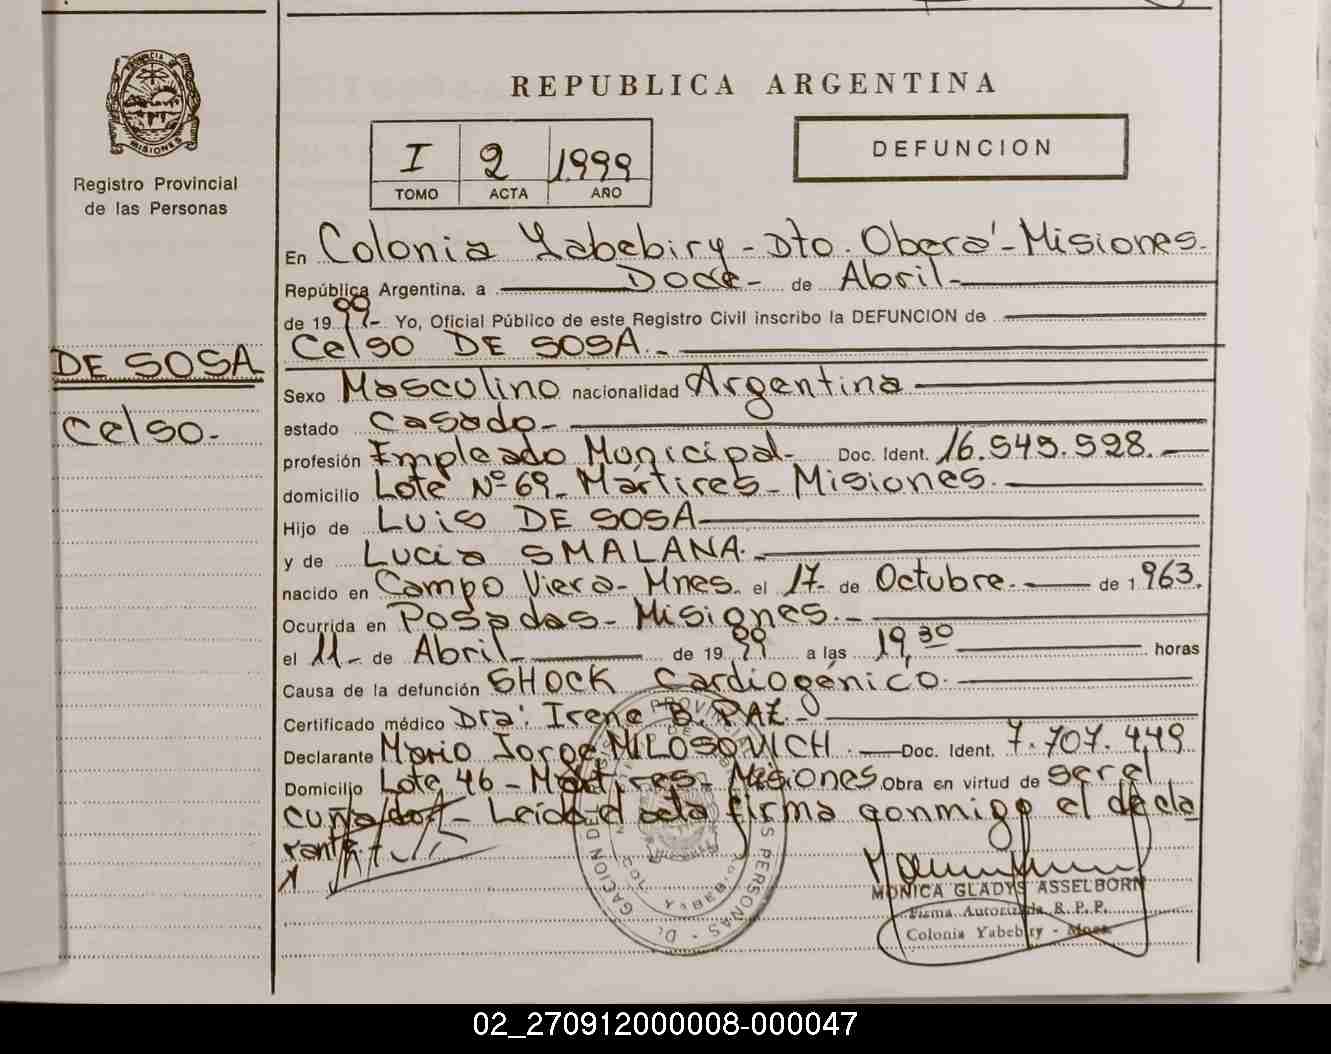 REPUBLICA ARGENTINA
PROVINCIA DE MISIONES
Registro Provincial
de las Personas
I 2 1.999
TOMO ACTA AÑO
DEFUNCION
En Colonia Yabebiry - Dto. Oberá - Misiones.
República Argentina, a Doce - de Abril -
de 1999 - Yo, Oficial Público de este Registro Civil inscribo la DEFUNCION de
Celso DE SOSA. -
DE SOSA
Celso.
Sexo Masculino nacionalidad Argentina
estado Casado -
profesión Empleado Municipal - Doc. Ident. 16.545.528. -
domicilio Lote Nº 69 - Mártires - Misiones.
Hijo de Luis DE SOSA
y de Lucia SMALANA. -
nacido en Campo Viera - Mnes. el 17 - de Octubre. de 1963.
Ocurrida en Posadas - Misiones. -
el 11 - de Abril - de 1999 a las 19,30 horas
Causa de la defunción SHOCK Cardiogénico.
Certificado médico Dra. Irene B. PAZ. -
Declarante Mario Jorge MILOSOVICH. Doc. Ident. 7.707.449
Domicilio Lote 46 - Martires - Misiones. Obra en virtud de ser el
cuñado. - Leída el acta firma conmigo el decla
rante
MONICA GLADYS ASSELBORN
Firma Autorizada R. P. P.
Colonia Yabebiry - Mnes.
02_270912000008-000047